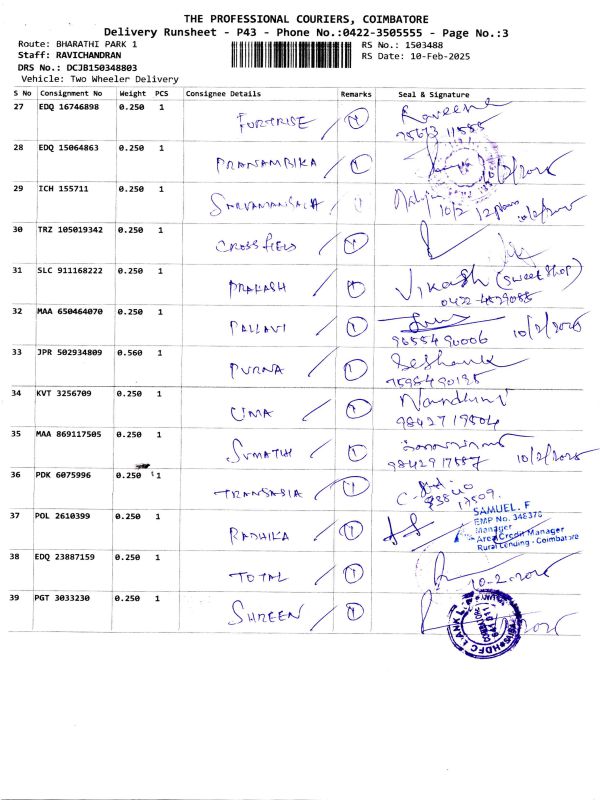 THE PROFESSIONAL COURIERS, COIMBATORE
Delivery Runsheet - P43 - Phone No.:0422-3505555 - Page No.:3
Route: BHARATHI PARK 1 RS No.: 1503488
Staff: RAVICHANDRAN RS Date: 10-Feb-2025
DRS No.: DCJB150348803
Vehicle: Two Wheeler Delivery
S No Consignment No Weight PCS Consignee Details Remarks Seal & Signature
27 EDQ 16746898 0.250 1 FORTRISE 1 Raveena
28 EDQ 15064863 0.250 1 PRANAMBIKA 1 10/2/2025
29 ICH 155711 0.250 1 10/2
30 TRZ 105019342 0.250 1 CROSSFIELD 1
31 SLC 911168222 0.250 1 PRAKASH 1 Vikash (Sweet Shop)
0422-4529088
32 MAA 650464070 0.250 1 PALLAVI 1
9655490006 10/2/2025
33 JPR 502934809 0.560 1 PURNA 1
7598490195
34 KVT 3256709 0.250 1 UMA 1 Nandhini
9842719504
35 MAA 869117505 0.250 1 SUMATHI 1
9842917587 10/2/2025
36 PDK 6075996 0.250 1 TRANSASIA 1
37 POL 2610399 0.250 1 RADHIKA 1 SAMUEL. F
EMP No. 348370
Manager
Area Credit Manager
Rural Lending - Coimbatore
38 EDQ 23887159 0.250 1 TOTAL 1 10-2-2025
39 PGT 3033230 0.250 1 SHREEN 1
HDFC BANK